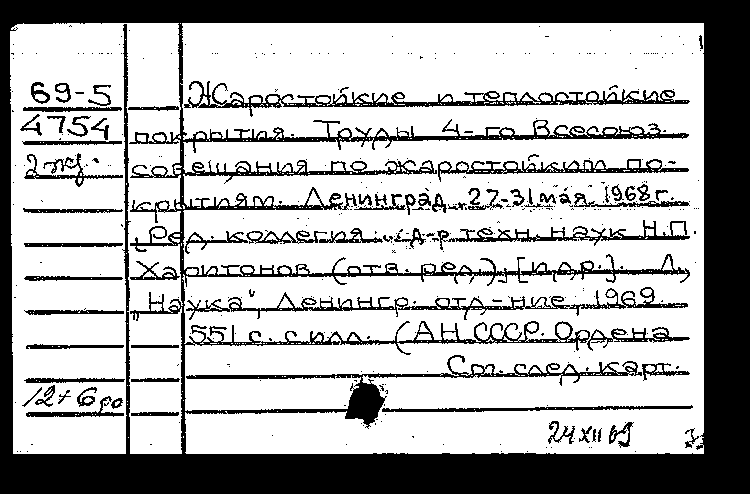 69-5 Жаростойкие и теплостойкие
4754 покрытия. Труды 4-го Всесоюз.
2 совещания по жаростойким по-
крытиям. Ленинград, 27-31 мая 1968 г.
[Ред. коллегия: д-р техн. наук Н.П.
Харитонов (отв. ред.), [и др.]. Л.,
„Наука", Ленингр. отд-ние, 1969.
551 с. с илл. (АН СССР. Ордена
См. след. карт.
12+6
24 XII 69